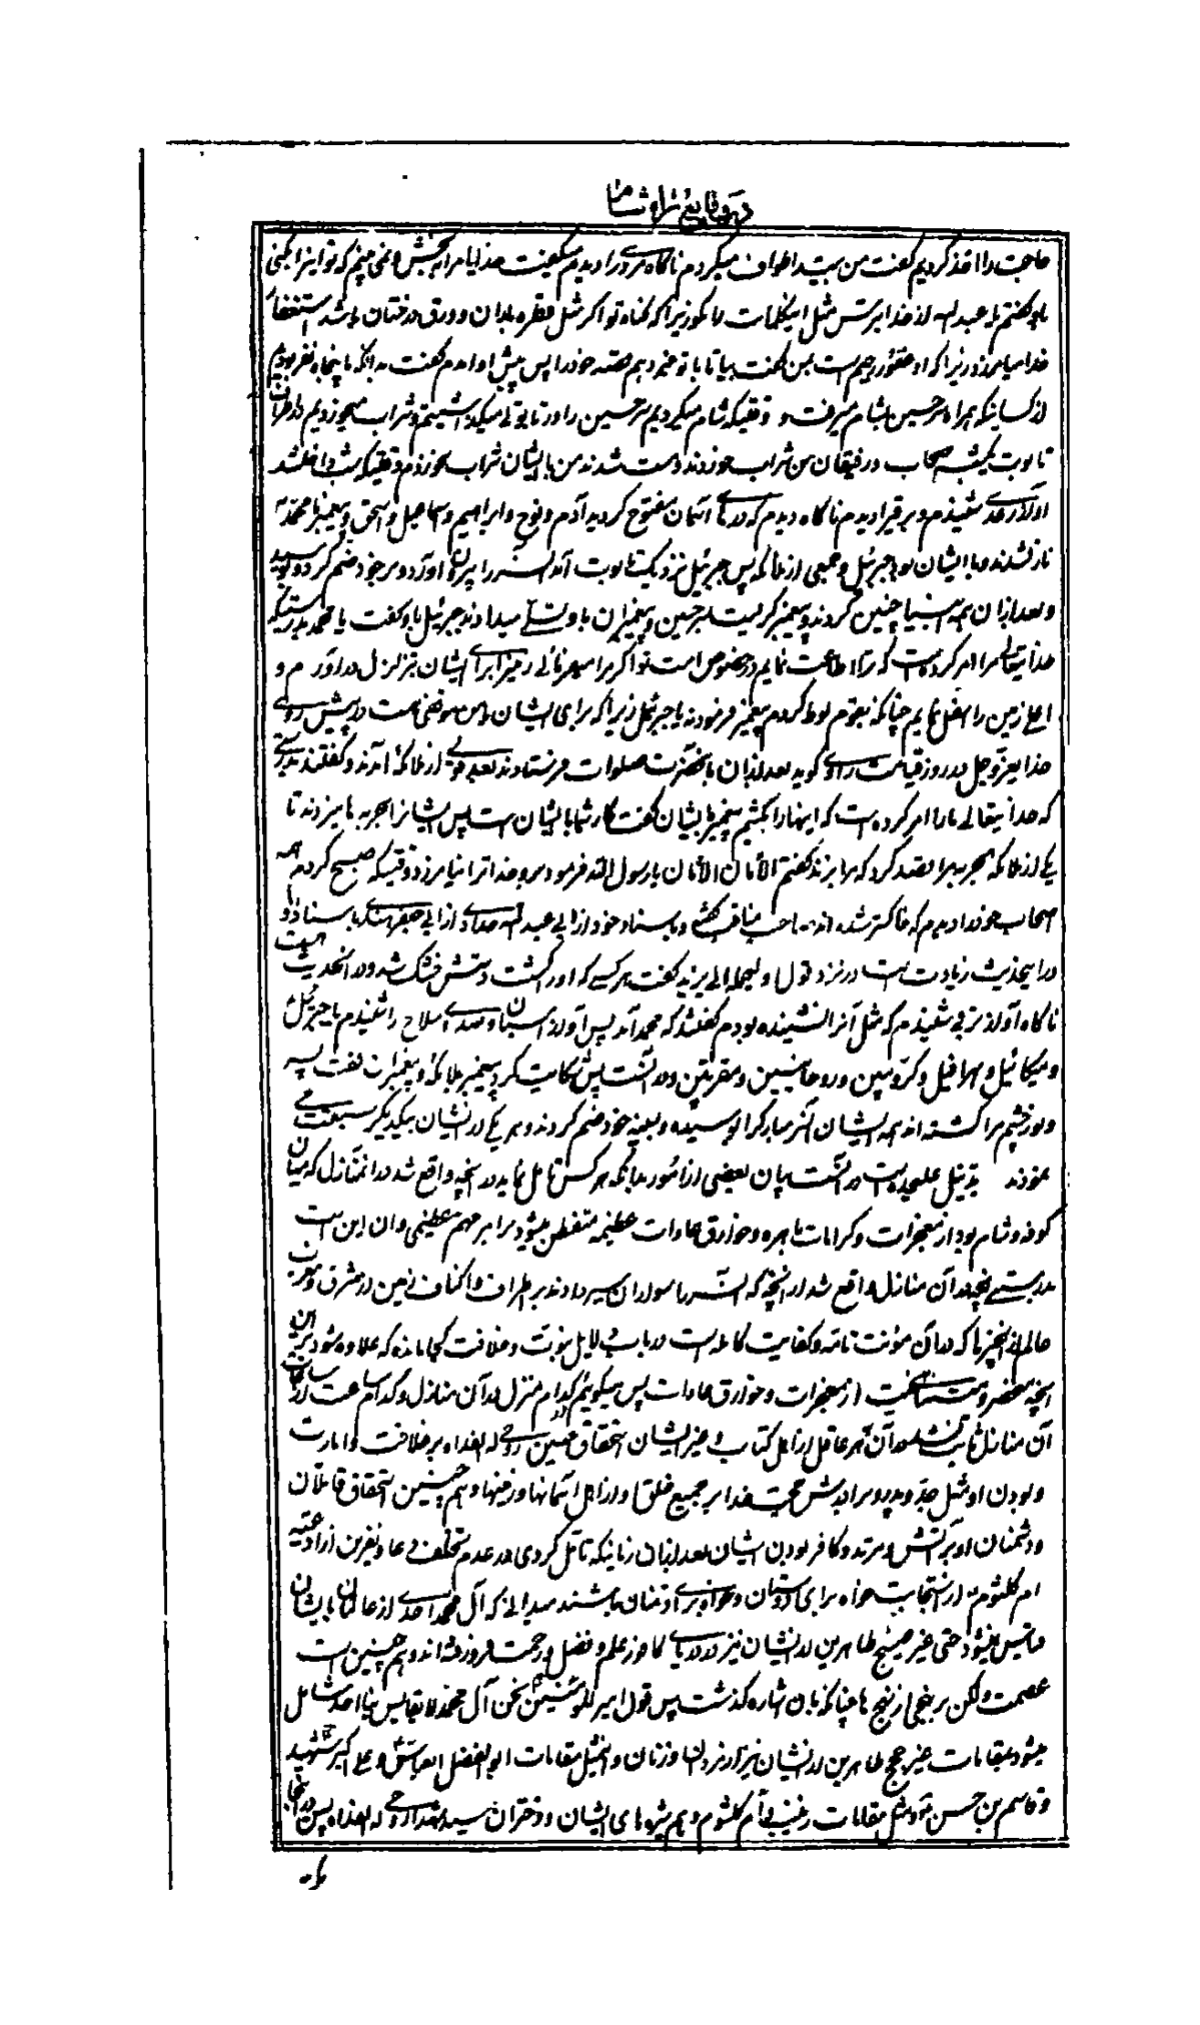 در وقایع راه شام
حاجت را اخذ کردیم گفت من بیت را طواف میکردم ناگاه مردی را دیدم میگفت خدایا مرا ببخش و نمی بینم که تو اینرا بکنی
باو گفتم یا عبد الله از خدا بترس مثل این کلمات را مگو زیرا که گناه تو اگر مثل قطره باران و ورق درختان باشد استغفار
خدا میامرزد زیرا که او غفور رحیم است بمن گفت بیا تا با تو خبر دهم قصه خود را پس پیش او امدم گفت بدانکه ما پنجاه نفر بودیم
از کسانیکه همراه سر حسین بشام میرفت و وقتیکه شام میکردیم سر حسین را در تابوتی میگذاشتیم و شراب میخوردیم در اطراف
تابوت یکشب اصحاب و رفیقان من شراب خوردند و مست شدند من با ایشان شراب نخوردم وقتیکه شب داخل شد
اواز رعدی شنیدم و برقی را دیدم ناگاه دیدم که درهای آسمان مفتوح گردید آدم و نوح و ابراهیم و اسماعیل و اسحق و پیغمبر ما محمد
نازل شدند و با ایشان بود جبرئیل و جمعی از ملائکه پس جبرئیل نزدیک تابوت آمد آنسر را بیرون آورد و بر خود ضم کرد و بوسید
و بعد ازان همه انبیا چنین کردند و پیغمبر گریست بر سر حسین و پیغمبران باو تسلی میدادند جبرئیل باو گفت یا محمد بدرستیکه
خدایتعالی مرا امر کرده است که ترا اطاعت نمایم در خصوص امت تو اگر مرا امر فرمائی زمین را برای ایشان بتزلزل در آورم و
اعلی زمین را اسفل نمایم چنانکه بقوم لوط کردم پیغمبر فرمودند یا جبرئیل زیرا که برای ایشان و من موقفی هست در پیش روی
خدا یعزوجل در روز قیامت راوی گوید بعد ازان بانحضرت صلوات فرستادند بعد قومی از ملائکه آمدند و گفتند بدرستی
که خدا یتعالی ما را امر کرده است که اینها را بکشیم پیغمبر بایشان گفت کار شما با ایشان است پس ایشانرا بحربه ها میزدند تا
یکی از ملائکه بحربه مرا قصد کرد که مرا بزند گفتم الأمان الأمان یا رسول الله فرمود برو خدا ترا نیامرزد وقتیکه صبح کردم همه
اصحاب خود را دیدم که خاکستر شده اند صاحب مناقب گفته و باسناد خود از ابی عبد الله از ابی جعفر باسناد او
در این حدیث زیادت است در نزد قول او گفت هر کسی که او را کشت دستش خشک شد و در انحدیث است
ناگاه آواز برقی شنیدم که مثل آنرا نشنیده بودم گفتند که محمد آمد پس آواز اسبان و صدای سلاح را شنیدم با جبرئیل
و میکائیل و اسرافیل و کروبیین و روحانیین و مقربین و در آنست پس شکایت کرد پیغمبر بملائکه و پیغمبران گفت پسر
و نور چشم مرا کشته اند همه ایشان آنسر مبارک را بوسیده و بسینه خود ضم کردند و هر یکی از ایشان بیکدیگر سبقت می
نمودند تذییل علیحده است در آنست بیان بعضی از امور بدانکه هر کس تامل نماید در آنچه واقع شد در انمنازل که میان
کوفه و شام بود از معجزات و کرامات باهره و خوارق عادات عظیمه متفطن میشود بر امر مهم عظیمی و ان این است
بدرستی آنچه در آن منازل واقع شد از آنچه که آنسر را سواران سیر دادند بر اطراف و اکناف زمین در مشرق و مغرب
عالم از چیزها که در آن مؤنت تامه و کفایت کامله است در باب دلایل نبوت و خلافت کجا مانده که علاوه شود بر این
آنچه از معجزات و خوارق عادات پس میگوئیم کدام منزل در آن منازل و کدام ساعت از ساعات
آن منازل ثابت نشد در آن بهر عاقل از اهل کتاب و غیر ایشان استحقاق حسین روحی له الفداه بر خلافت و امارت
و بودن او مثل جد و پدر و برادرش حجت خدا بر جمیع خلق او از اهل آسمانها و زمینها و هم چنین استحقاق قاتلان
و دشمنان او بر آتش و مرتد و کافر بودن ایشان بعد ازان زمانیکه تامل کردی در عدم تخلف دعا و نفرین از ادعیه
ام کلثوم از استجابت خواه برای دوستان و خواه برای دشمنان باشند میدانی که آل محمد احدی از عالمیان بایشان
قیاس نمیشود حتی غیر حجج طاهرین از ایشان نیز در دریای علم و فضل و رحمت فرو رفته اند و هم چنین است
عصمت ولکن بر نهجی از نهج ها چنانکه بان اشاره گذشت پس قول امیر المؤمنین نحن آل محمد لا یقاس بنا احد شامل
میشود بمقامات غیر حجج طاهرین از ایشان نیز از مردان و زنان و مثل مقامات ابو الفضل العباس و علی اکبر شهید
و قاسم بن حسن و مثل مقامات زینب و ام کلثوم و هم شیره های ایشان و دختران سید الشهدا روحی له الفداه پس در اینجا